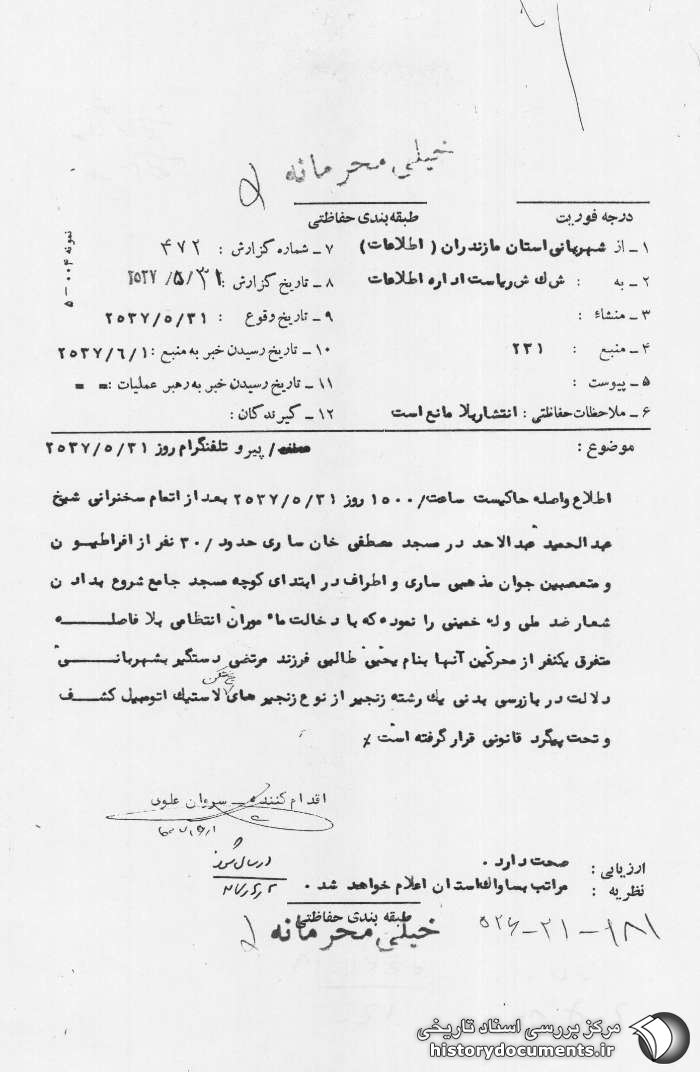 خیلی محرمانه
درجه فوریت
طبقه بندی حفاظتی
نمونه ۰۰۴ – ۵
۱ـ از شهربانی استان مازندران ( اطلاعات )
۷ـ شماره گزارش : ۴۷۲
۲ـ به : ش ك ش ریاست اداره اطلاعات
۸ـ تاریخ گزارش : ۲۵۳۷/۵/۳۱
۳ـ منشاء :
۹ـ تاریخ وقوع : ۲۵۳۷/۵/۳۱
۴ـ منبع : ۲۳۱
۱۰ـ تاریخ رسیدن خبر به منبع : ۲۵۳۷/۶/۱
۵ـ پیوست :
۱۱ـ تاریخ رسیدن خبر به رهبر عملیات : = =
۶ـ ملاحظات حفاظتی : انتشار بلا مانع است
۱۲ـ گیرندگان :
موضوع : پیرو تلفنگرام روز ۲۵۳۷/۵/۳۱
اطلاع واصله حاکیست ساعت/۱۵۰۰ روز ۲۵۳۷/۵/۳۱ بعد از اتمام سخنرانی شیخ
عبدالحمید عبدالاحد در مسجد مصطفی خان ساری حدود /۳۰ نفر از افراطیون
و متعصبین جوان مذهبی ساری و اطراف در ابتدای کوچه مسجد جامع شروع بدادن
شعار ضد ملی و له خمینی را نموده که با دخالت ماموران انتظامی بلا فاصله
متفرق یکنفر از محرکین آنها بنام یحیی طالبی فرزند مرتضی دستگیر بشهربانی
دلالت در بازرسی بدنی یك رشته زنجیر از نوع زنجیر های یخ شکن لاستیك اتومبیل کشف
و تحت پیگرد قانونی قرار گرفته است ٪
اقدام کننده سروان علوی
ارزیابی : صحت دارد .
نظریه : مراتب بساواك استان اعلام خواهد شد .
طبقه بندی حفاظتی
خیلی محرمانه
مرکز بررسی اسناد تاریخی
historydocuments.ir